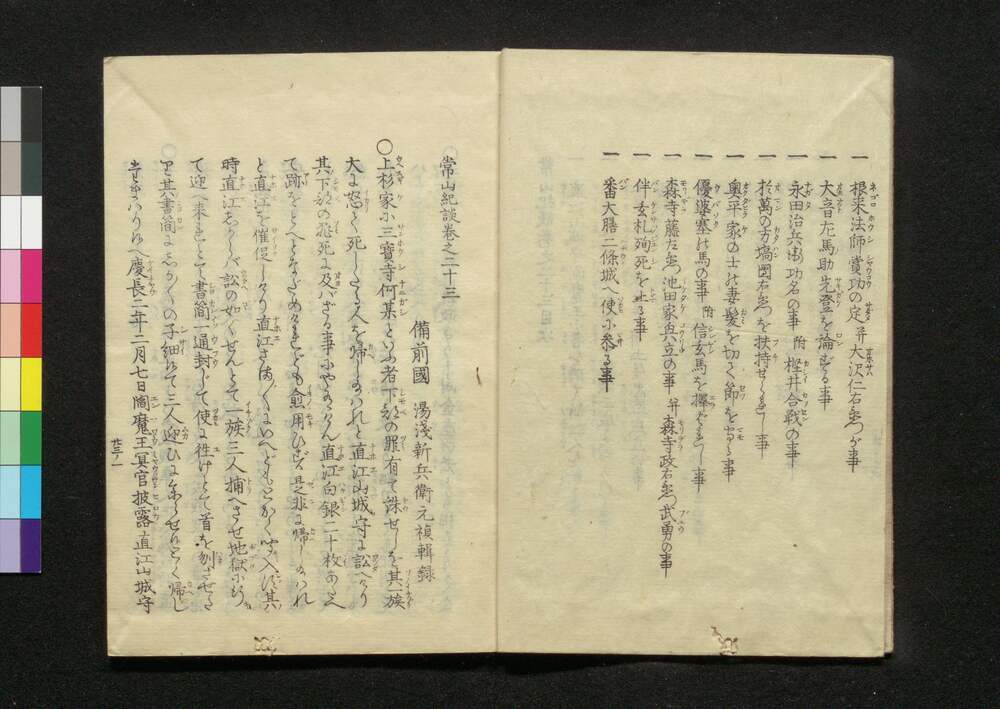 一 根来法師賞功の定并大沢仁右衛門が事
一 大音左馬助先登を論ずる事
一 永田治兵衛功名の事附樫井合戦の事
一 於萬の方塙團右衛門を扶持せられし事
一 奥平家の士の妻髪を切て節を守る事
一 優婆塞の馬の事附信玄馬を擇ばれし事
一 森寺藤左衛門池田家興立の事并森寺政右衛門武勇の事
一 伴玄札殉死を止る事
一 番大膳二條城へ使に参る事
常山紀談巻之二十三
備前國 湯淺新兵衛元禎輯録
○上杉家に三寶寺何某といふ者下部の罪有て誅せしを其一族
大に怒て死したる人を帰し給はれと直江山城守に訟へけり
其下部の死に及バざる事にやありけん直江白銀二十枚あたへ
て跡をとへとなだめけれども愈用ひず是非に帰し給はれ
と直江を催促しけり直江さま〲にいへどもとかく聞入ず其
時直江しからバ訟の如くせんとて一族三人捕へさせ地獄にもう
て迎へ来れとて書簡一通封じて使に往けとて首を刎させた
り其書簡にしか〲の子細にて三人迎ひにまゐらせ候とく帰し
慶長二年二月七日閻魔王冥官披露直江山城守
廿三ノ一